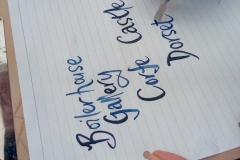 Boilerhouse
Gallery
Corfe Castle
Dorset